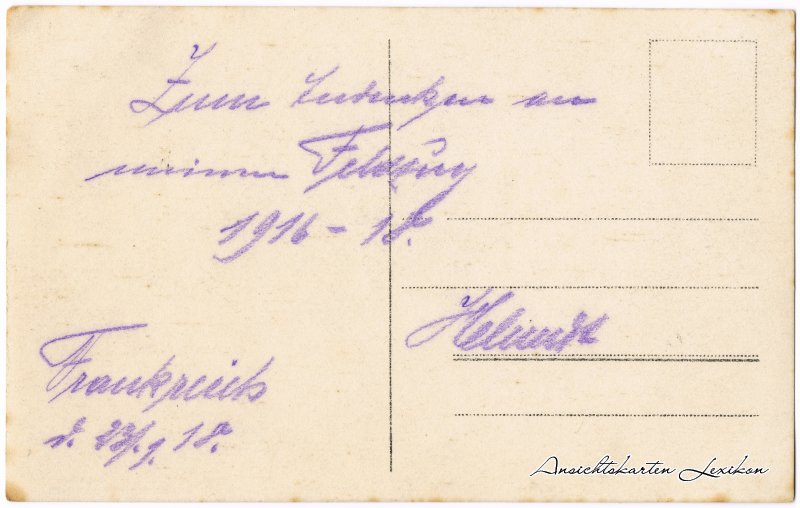 Zum Andenken an
meinen Feldzug
1916 - 18.
Frankreich
d. 1 18.
Ansichtskarten Lexikon